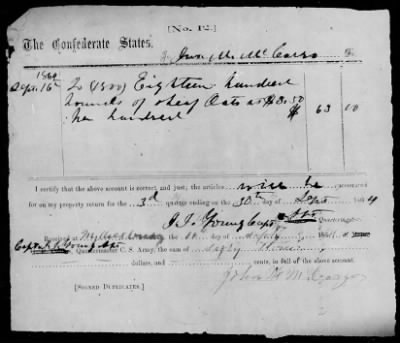 [No. 12.]
The Confederate States.
To Jno. M. Mc
1864
Sept. 16th To (1800) Eighteen hundred
pounds of sheaf Oats at $3.50
per hundred $ 63 00
I certify that the above account is correct and just; the articles will be accounted
for on my property return for the 3d quarter ending on the 30th day of Sept 1864
Young Capt
Quartermaster.
Received at the 16 day of Sept
Capt Young, Quartermaster C. S. Army, the sum of Sixty three
dollars, and cents, in full of the above account.
John M. Mc
[SIGNED DUPLICATES.]